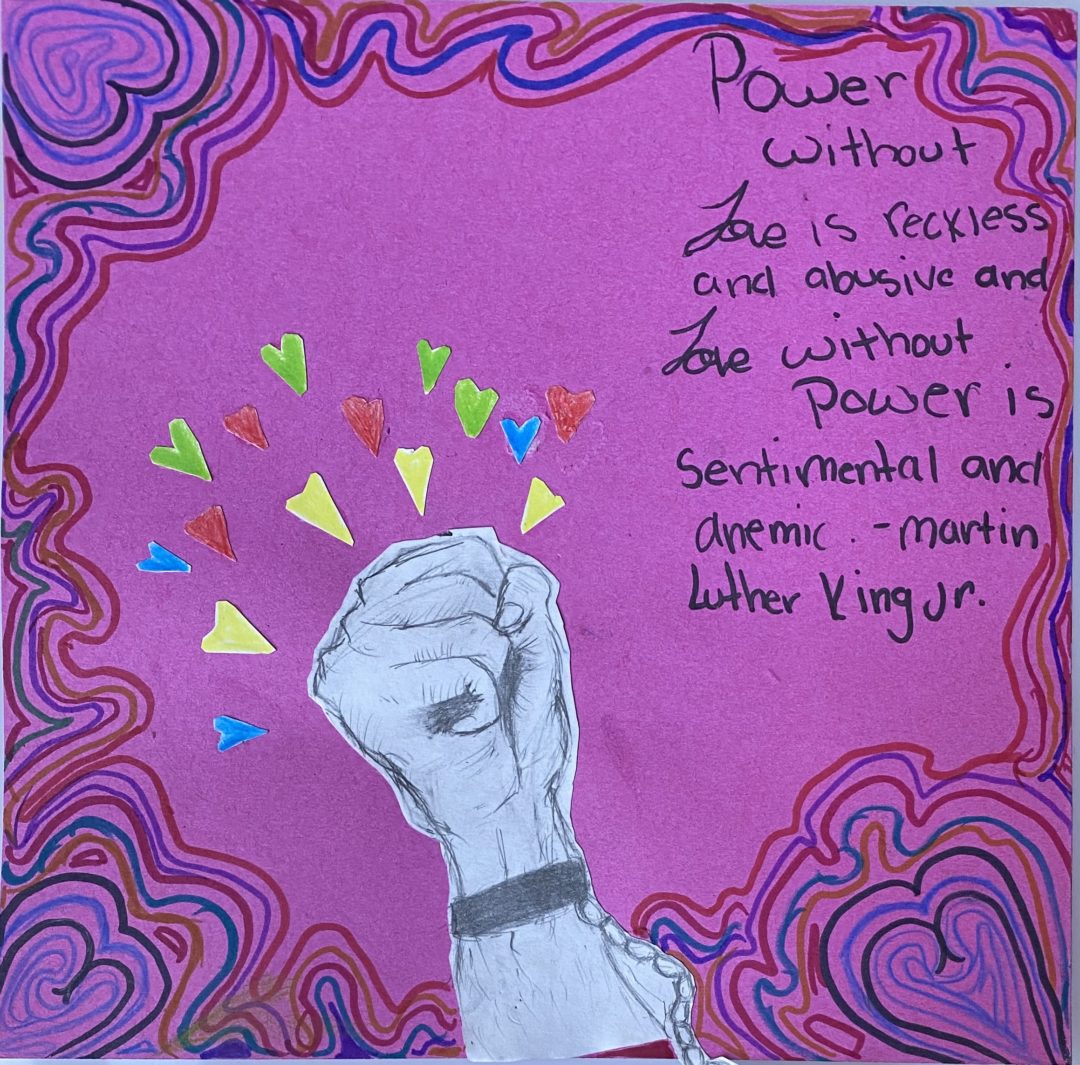 Power
without
Love is reckless
and abusive and
Love without
power is
sentimental and
anemic. - martin
Luther King Jr.